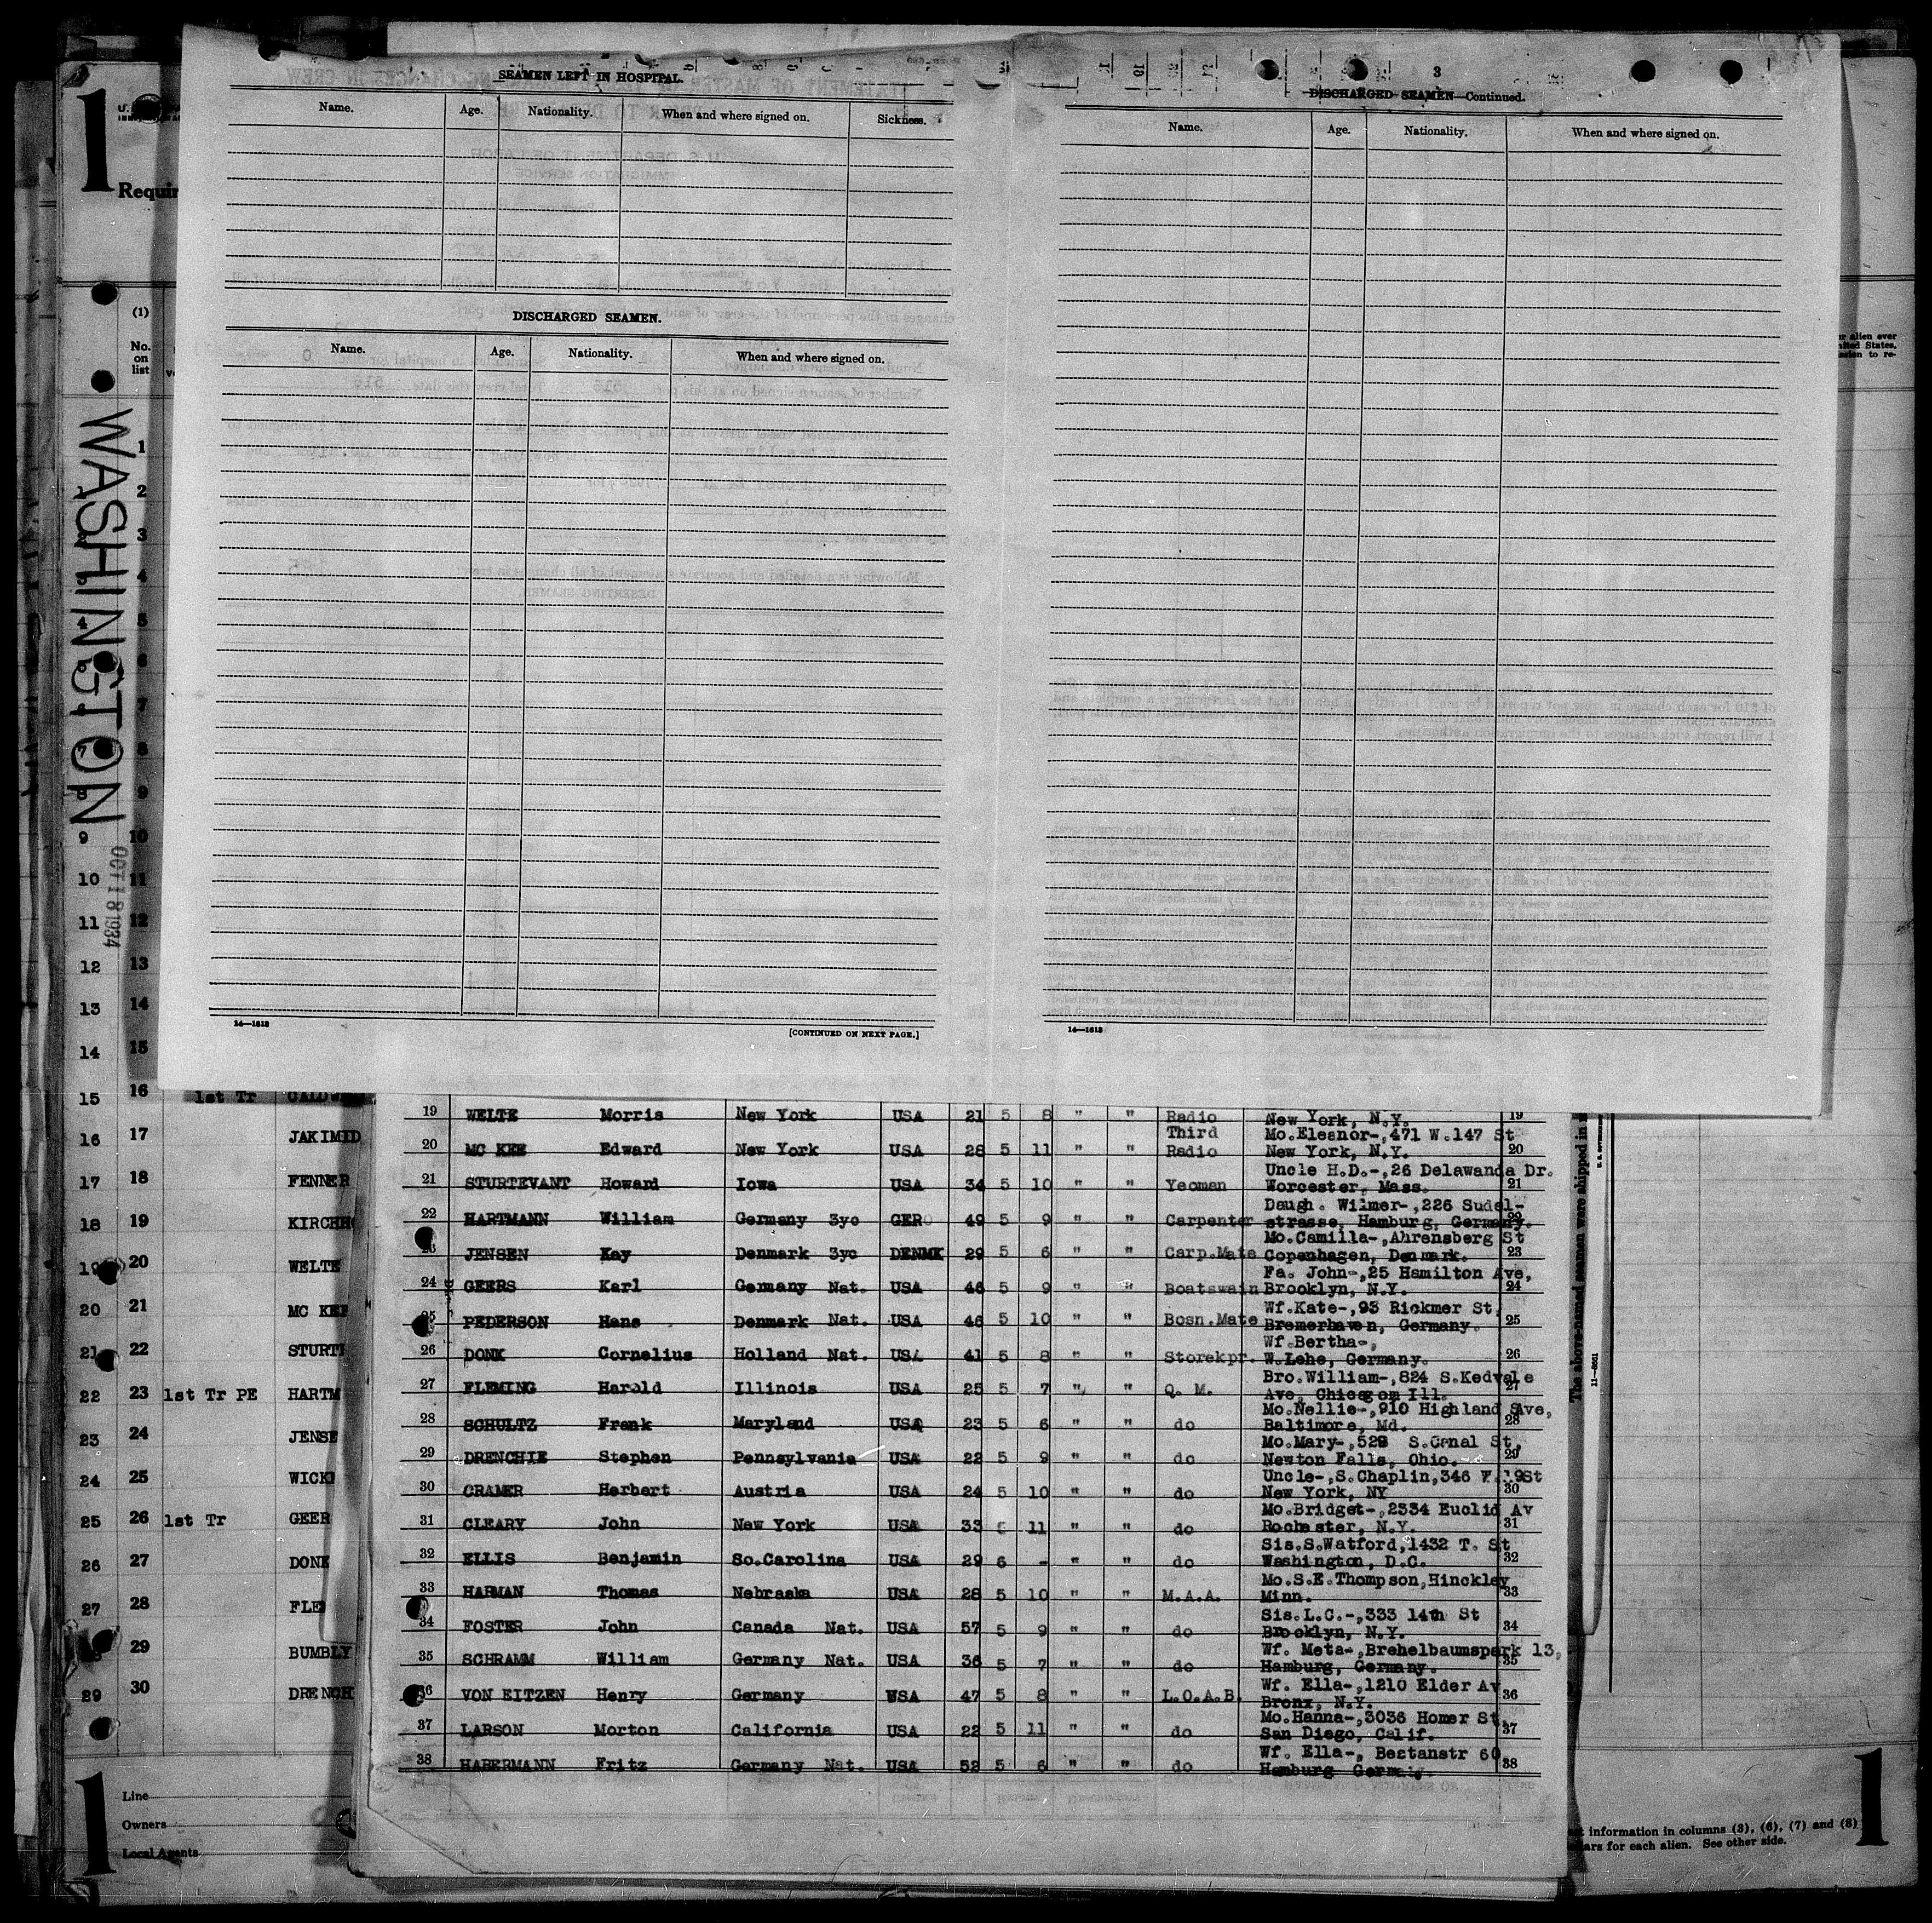 1
Requir
(1)
No.
on
list
WASHINGTON
OCT 18 1934
SEAMEN LEFT IN HOSPITAL.
Name. Age. Nationality. When and where signed on. Sickness.
DISCHARGED SEAMEN.
Name. Age. Nationality. When and where signed on.
14—1613
[CONTINUED ON NEXT PAGE.]
3
DISCHARGED SEAMEN—Continued.
Name. Age. Nationality. When and where signed on.
14—1613
1
2
3
4
5
6
7 8
8 9
9 10
10 11
11 12
12 13
13 14
14 15
15 16 1st Tr CALDW
16 17 JAKIMID
17 18 FENNER
18 19 KIRCHH
19 20 WELTE
20 21 MC KEE
21 22 STURT
22 23 1st Tr PE HARTM
23 24 JENSE
24 25 WICK
25 26 1st Tr GEER
26 27 DONK
27 28 FLE
29 BUMBLY
29 30 DRENCH
19 WELTE Morris New York USA 21 5 8 " " Radio New York, N.Y. 19
Third Mo.Eleanor-,471 W.147 St
20 MC KEE Edward New York USA 28 5 11 " " Radio New York, N.Y. 20
Uncle H.D.-,26 Delawanda Dr.
21 STURTEVANT Howard Iowa USA 34 5 10 " " Yeoman Worcester, Mass. 21
Daugh. Wilmer-,226 Sudel-
22 HARTMANN William Germany 3yo GER 49 5 9 " " Carpenter strasse, Hamburg, Germany. 22
Mo.Camilla-,Ahrensberg St
23 JENSEN Kay Denmark 3yo DENMK 29 5 6 " " Carp.Mate Copenhagen, Denmark. 23
Fa. John-,25 Hamilton Ave,
24 GEERS Karl Germany Nat. USA 46 5 9 " " Boatswain Brooklyn, N.Y. 24
Wf.Kate-,93 Rickmer St,
25 PEDERSON Hans Denmark Nat. USA 46 5 10 " " Bosn.Mate Bremerhaven, Germany. 25
Wf.Bertha-,
26 DONK Cornelius Holland Nat. USA 41 5 8 " " Storekpr. W.Lehe, Germany. 26
Bro.William-,824 S.Kedvale
27 FLEMING Harold Illinois USA 25 5 7 " " Q. M. Ave, Chicagom Ill. 27
Mo.Nellie-,910 Highland Ave,
28 SCHULTZ Frank Maryland USA 23 5 6 " " do Baltimore, Md. 28
Mo.Mary-,528 S.Canal St,
29 DRENCHIE Stephen Pennsylvania USA 22 5 9 " " do Newton Falls, Ohio. 29
Uncle-,S.Chaplin,346 W.19St
30 CRAMER Herbert Austria USA 24 5 10 " " do New York, NY 30
Mo.Bridget-,2334 Euclid Av
31 CLEARY John New York USA 33 5 11 " " do Rochester, N.Y. 31
Sis.S.Watford,1432 T. St
32 ELLIS Benjamin So.Carolina USA 29 6 - " " do Washington, D.C. 32
Mo.S.E.Thompson,Hinckley
33 HARMAN Thomas Nebraska USA 28 5 10 " " M.A.A. Minn. 33
Sis.L.C.-,333 14th St
34 FOSTER John Canada Nat. USA 57 5 9 " " do Brooklyn, N.Y. 34
Wf. Meta-,Brehelbaumspark 13,
35 SCHRAMM William Germany Nat. USA 36 5 7 " " do Hamburg, Germany. 35
Wf. Ella-,1210 Elder Av
36 VON EITZEN Henry Germany USA 47 5 8 " " L.O.A.B. Bronx, N.Y. 36
Mo.Hanna-,3036 Homer St,
37 LARSON Morton California USA 22 5 11 " " do San Diego, Calif. 37
Wf. Ella-, Bestanstr 60
38 HABERMANN Fritz Germany Nat. USA 52 5 6 " " do Hamburg Germany. 38
The above-named seamen were shipped in
Line
Owners
Local Agents
1
information in columns (3), (6), (7) and (8)
ars for each alien. See other side.
1